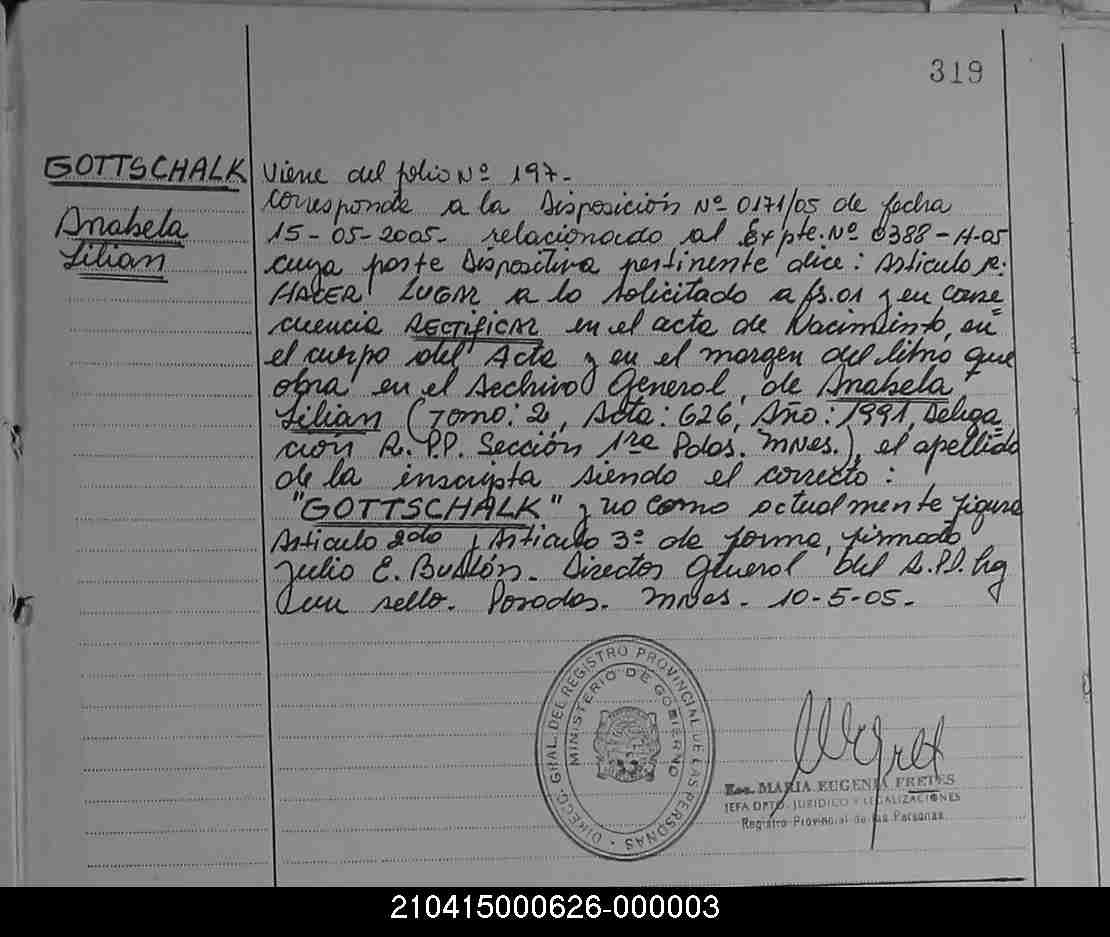 319
GOTTSCHALK
Anabela
Lilian
Viene del folio Nº 197.-
Corresponde a la Disposición Nº 0171/05 de fecha
15-05-2005- relacionado al Expte. Nº 0388-H-05
cuya parte Dispositiva pertinente dice: Articulo
HACER LUGAR a lo solicitado a fs. 01 y en conse
cuencia RECTIFICAR en el acta de Nacimiento, en
el cuerpo del Acta y en el margen del libro que
obra en el Archivo General, de Anabela
Lilian (Tomo: 2, Acta: 626, Año: 1991, Delega
ción R.P.P. Sección 1ra Pdas. Mnes.), el apellido
de la inscripta siendo el correcto:
"GOTTSCHALK" y no como actualmente figura
Articulo 2do y Articulo 3º de forma, firmado
Julio E. Directos General del R.P.P. hay
un sello. Posadas. Mnes. 10-5-05.-
DIRECC. GRAL. DEL REGISTRO PROVINCIAL DE LAS PERSONAS
MINISTERIO DE GOBIERNO
Esc. MARIA EUGENIA FRETES
JEFA DPTO. JURIDICO Y LEGALIZACIONES
Registro Provincial de las Personas
210415000626-000003